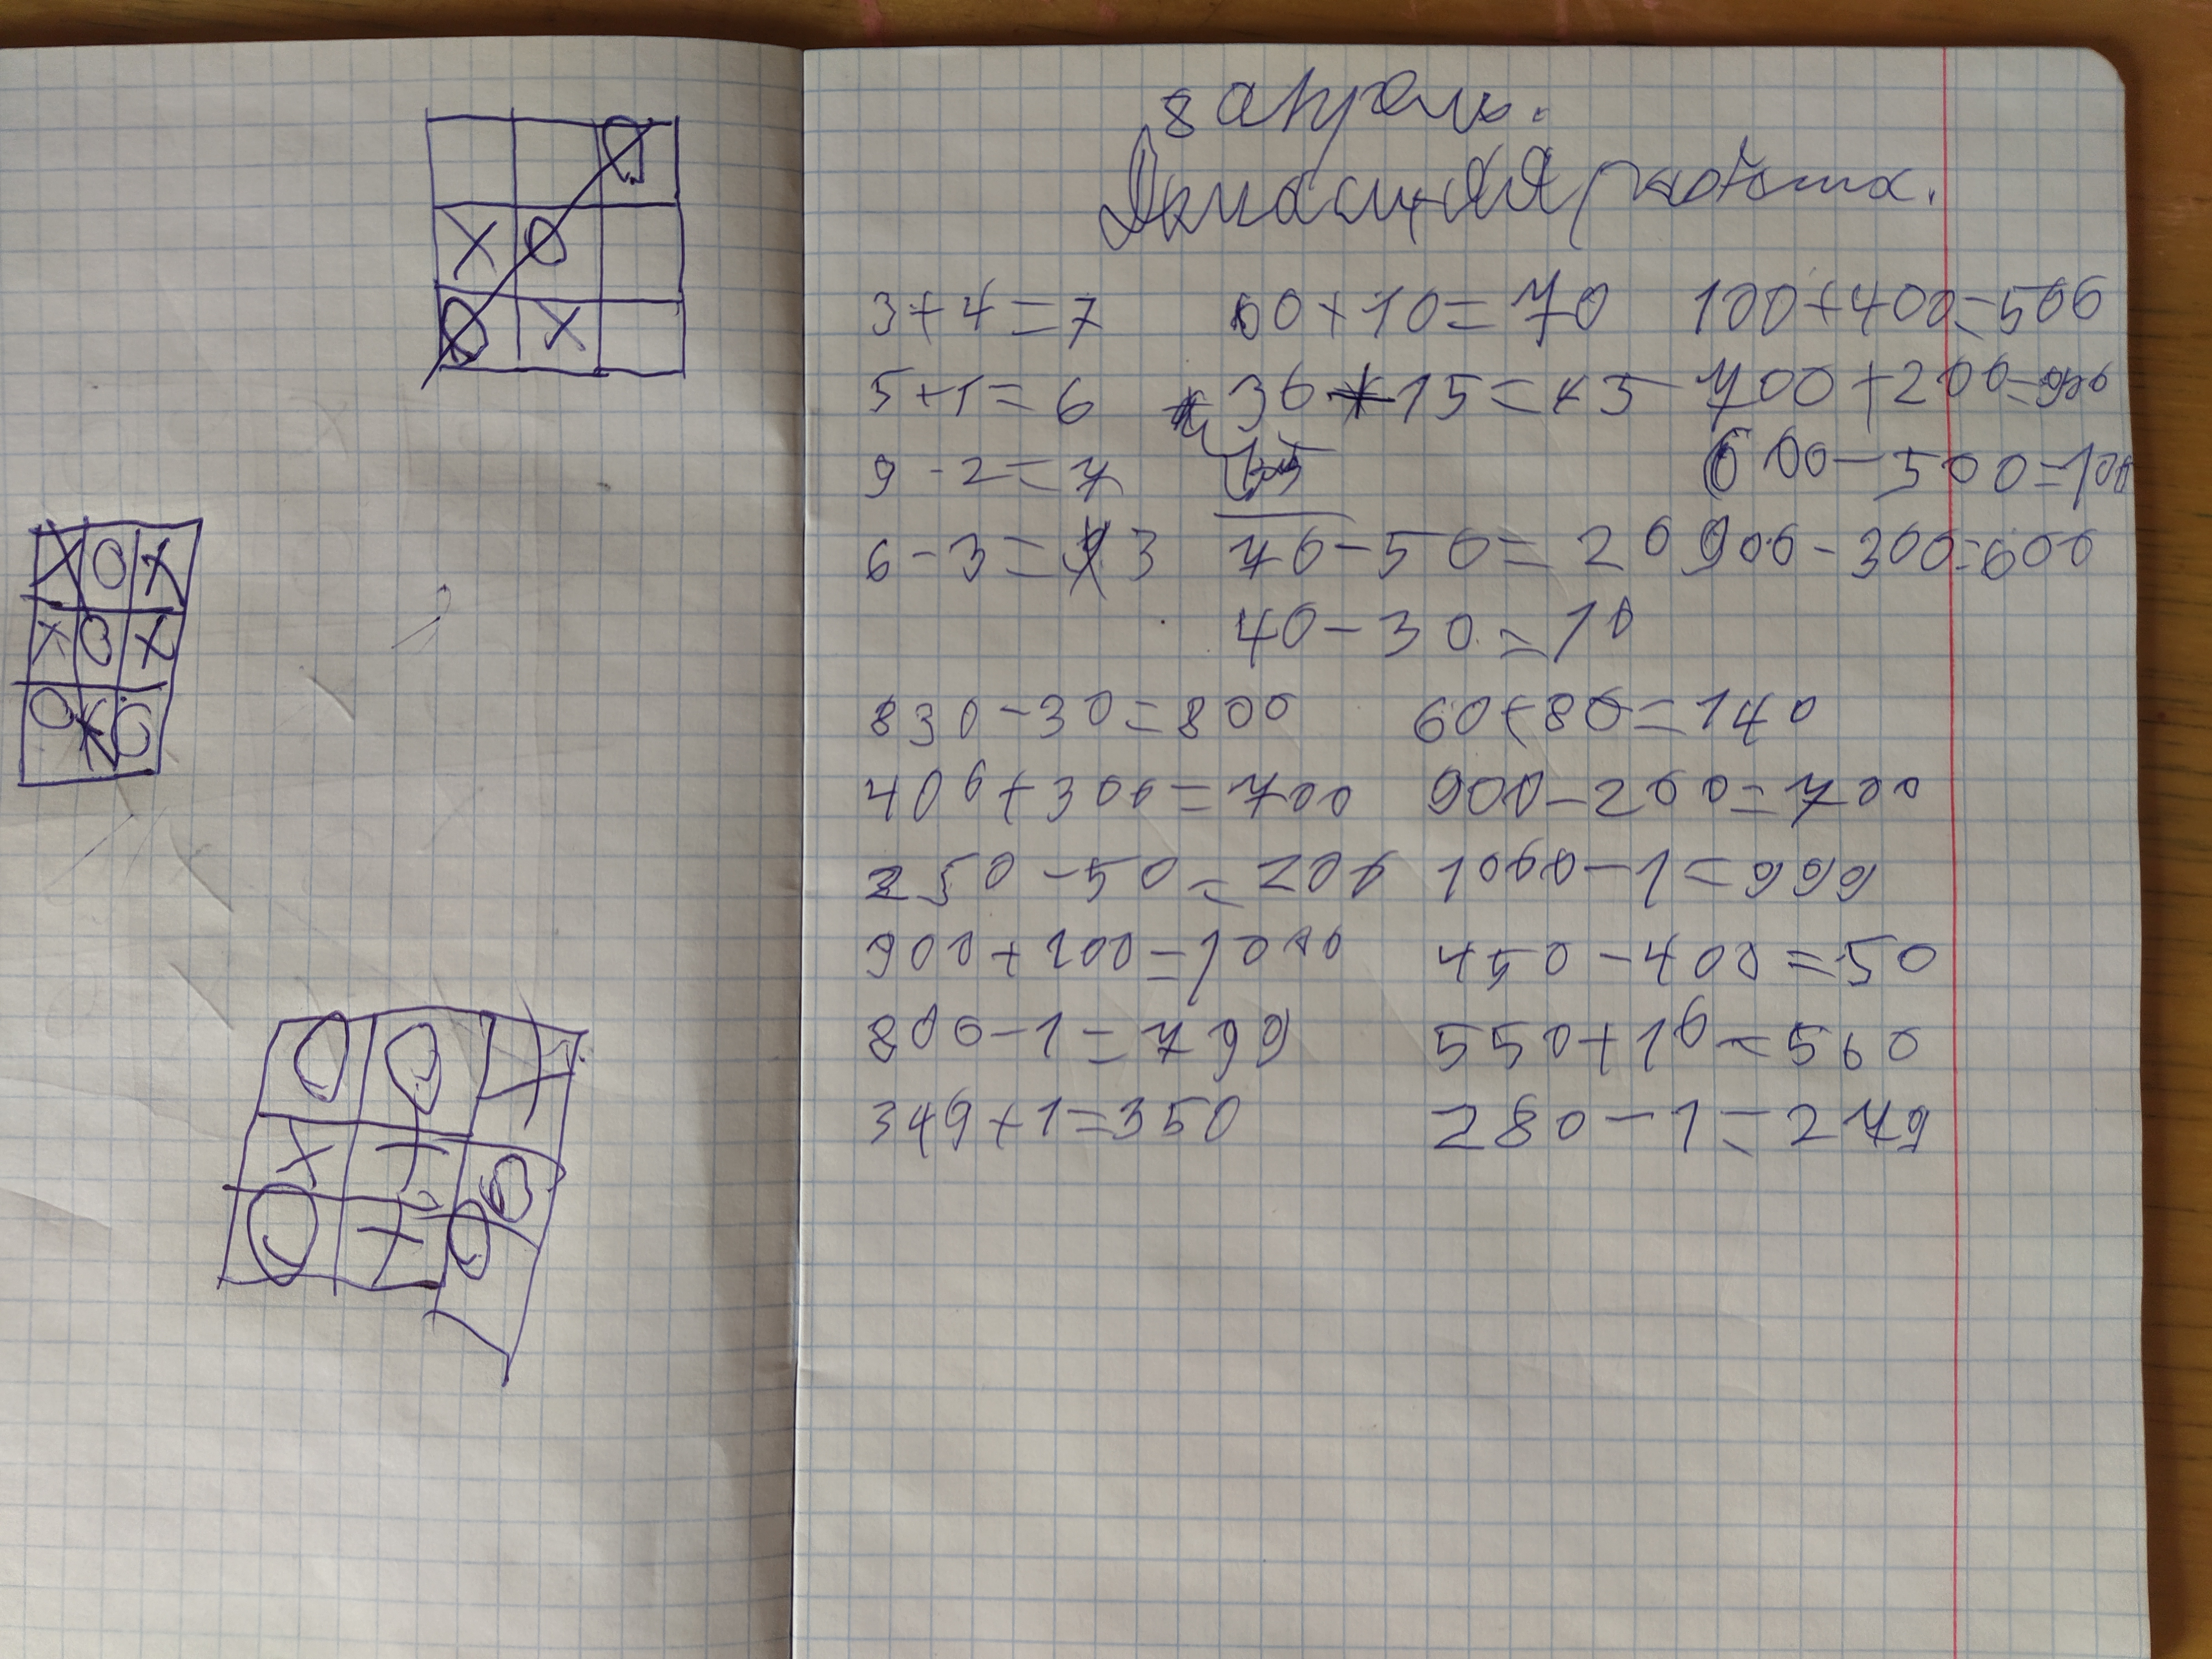 8 апрель.
Домашняя работа.
3+4=7 60+10=70 100+400=500
5+1=6 30+15=45 700+200=900
9-2=7 600-500=100
6-3=3 70-50=20 900-300=600
40-30=10
830-30=800 60+80=140
400+300=700 900-200=700
250-50=200 1000-1=999
900+100=1000 450-400=50
800-1=799 550+10=560
349+1=350 280-1=279
X O
O X
O
X O X
X O X
O X O
O O X
X X O
O X O